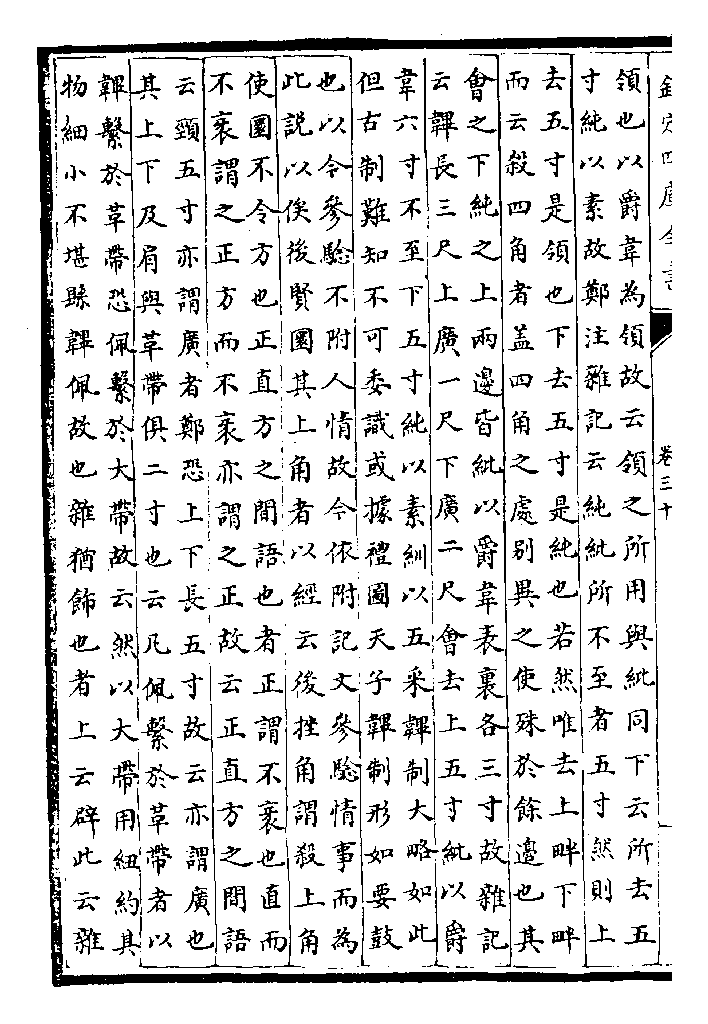 欽定四庫全書
卷三十
領也以爵韋為領故云領之所用與紕同下云所去五
寸純以素故鄭注雜記云純紕所不至者五寸然則上
去五寸是領也下去五寸是純也若然唯去上畔下畔
而云殺四角者盖四角之處别異之使殊於餘邊也其
會之下純之上兩邊皆紕以爵韋表裏各三寸故雜記
云韠長三尺上廣一尺下廣二尺會去上五寸紕以爵
韋六寸不至下五寸純以素紃以五采韠制大略如此
但古制難知不可委識或據禮圖天子韠制形如要鼓
也以今參驗不附人情故今依附記文參驗情事而為
此説以俟後賢圜其上角者以經云後挫角謂殺上角
使圜不令方也正直方之間語也者正謂不衺也直而
不衺謂之正方而不衺亦謂之正故云正直方之間語
云頸五寸亦謂廣者鄭恐上下長五寸故云亦謂廣也
其上下及肩與革帶俱二寸也云凡佩繫於革帶者以
韠繫於革帶恐佩繫於大帶故云然以大帶用紐約其
物細小不堪縣韠佩故也雜猶飾也者上云辟此云雜